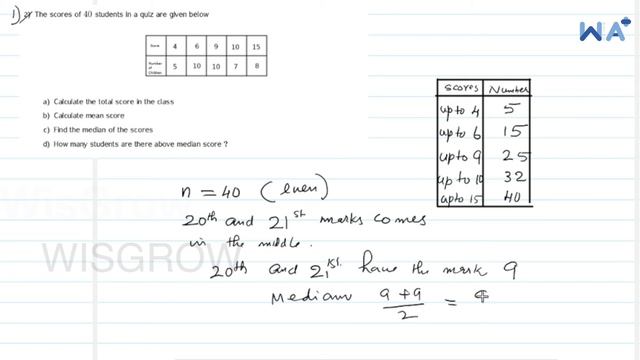 1) 2) The scores of 40 students in a quiz are given below
Score 4 6 9 10 15
Number of Children 5 10 10 7 8
a) Calculate the total score in the class
b) Calculate mean score
c) Find the median of the scores
d) How many students are there above median score ?
WA+
scores Number
up to 4 5
up to 6 15
up to 9 25
up to 10 32
upto 15 40
n = 40 (even)
20th and 21st marks comes
in the middle.
20th and 21st have the mark 9
Median 9+9/2 = 9
WISGROW